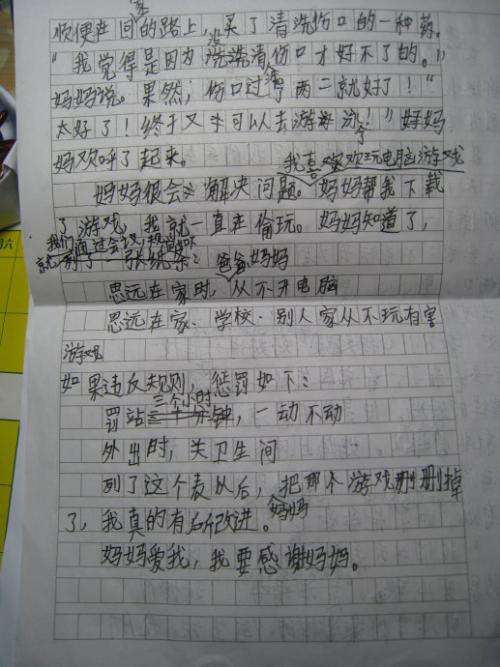 顺便在回家的路上，买了清洗伤口的一种药。
“我觉得是因为没洗清伤口才好不了的。”
妈妈说。果然，伤口过没两二就好了！“
太好了！终于又可以去游泳了！”妈妈
妈欢呼了起来。
我喜欢玩电脑游戏
妈妈很会解决问题。妈妈帮我下载
了游戏，我就一直在偷玩。妈妈知道了，
我们通过会议，
就列了一张纸条：爸爸妈妈
思远在家时，从不开电脑
思远在家、学校、别人家从不玩有害
游戏
如果违反规则，惩罚如下：
罚站三个小时，一动不动
外出时，关卫生间
列了这个表以后，把那个游戏删删掉
了，我真的有所改进。妈妈
妈妈爱我，我要感谢妈妈。